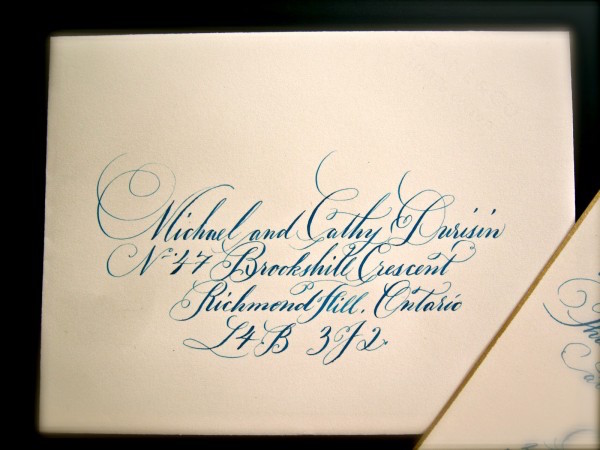 Michael and Cathy Durisin
No. 47 Brookshill Crescent
Richmond Hill, Ontario
L4B 3J2